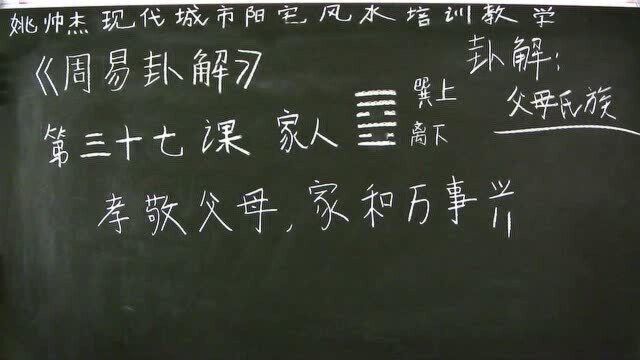 姚帅杰现代城市阳宅风水培训教学
《周易卦解》
卦解：
父母氏族
第三十七课 家人
巽上
离下
孝敬父母，家和万事兴